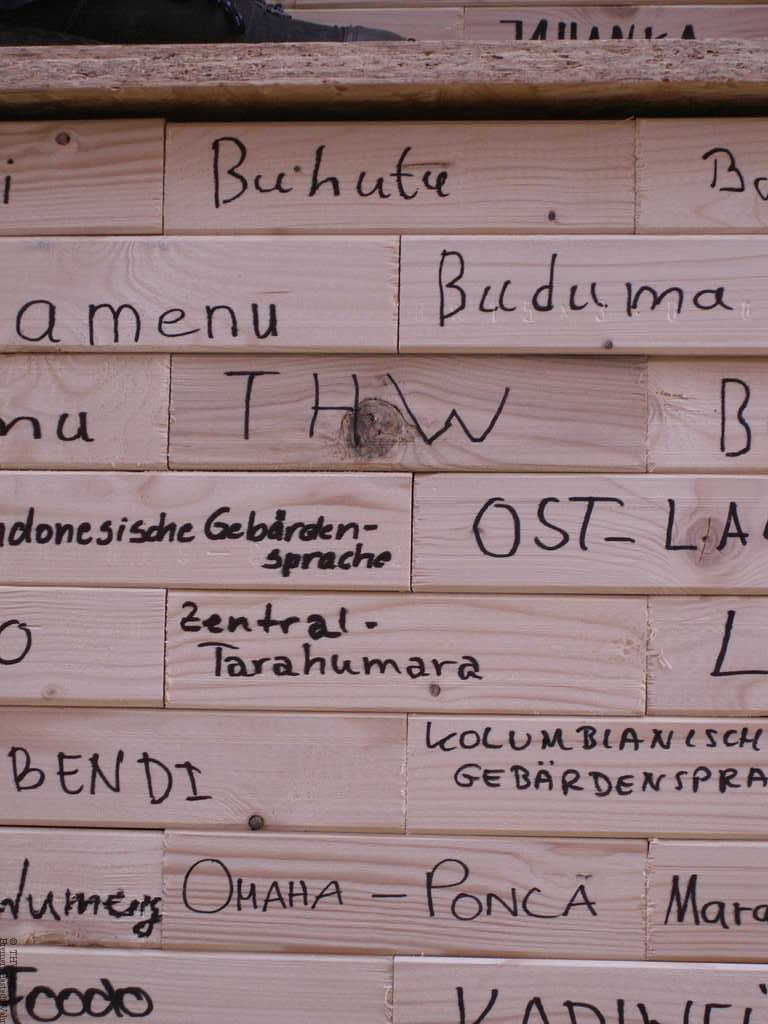 Buhutu
amenu
Buduma
nu
THW
B
ndonesische Gebärden-
sprache
OST-LA
O
Zentral-
Tarahumara
L
BENDI
KOLUMBIANISCH
GEBÄRDENSPRA
OMAHA - PONCA
Mara
Foodo